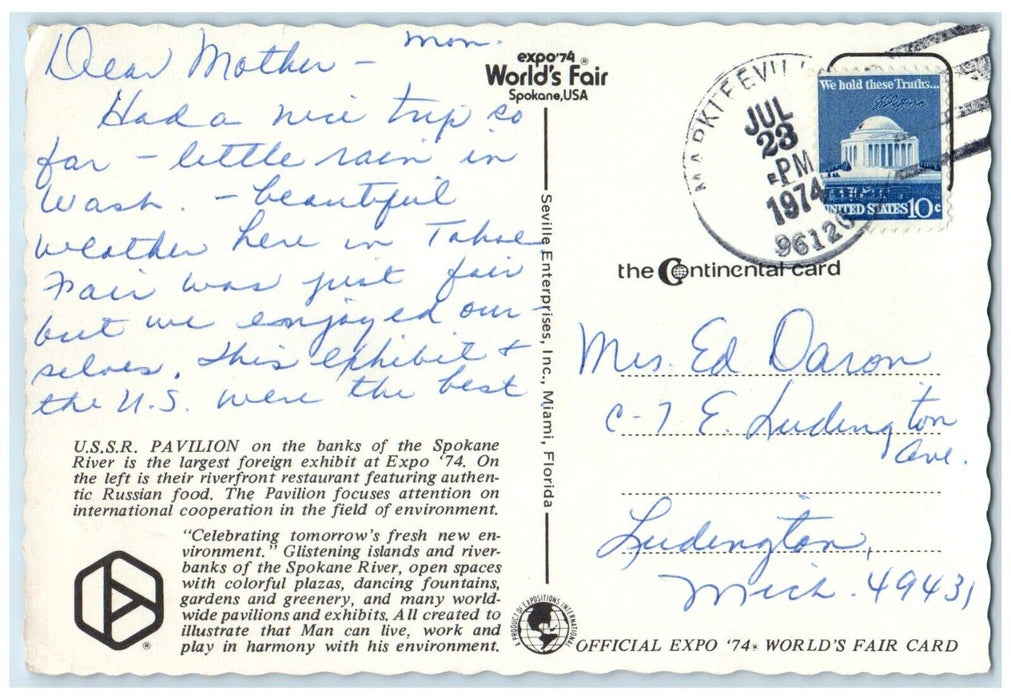 Mon.
Dear Mother -
Had a nice trip so
far - little rain in
Wash. - beautiful
weather here in Tahoe
Fair was just fair
but we enjoyed our-
selves. This exhibit +
the U.S. were the best
U.S.S.R. PAVILION on the banks of the Spokane
River is the largest foreign exhibit at Expo '74. On
the left is their riverfront restaurant featuring authen-
tic Russian food. The Pavilion focuses attention on
international cooperation in the field of environment.
"Celebrating tomorrow's fresh new en-
vironment." Glistening islands and river-
banks of the Spokane River, open spaces
with colorful plazas, dancing fountains,
gardens and greenery, and many world-
wide pavilions and exhibits. All created to
illustrate that Man can live, work and
play in harmony with his environment.
®
expo'74 ®
World's Fair
Spokane, USA
Seville Enterprises, Inc., Miami, Florida
A PRODUCT OF EXPOSITIONS INTERNATIONAL
MARKLEEVILL
JUL
23
PM
1974
96120
We hold these Truths...
UNITED STATES 10c
the Continental card
Mrs. Ed Daron
C-7 E. Ludington
Ave.
Ludington,
Mich. 49431
OFFICIAL EXPO '74® WORLD'S FAIR CARD